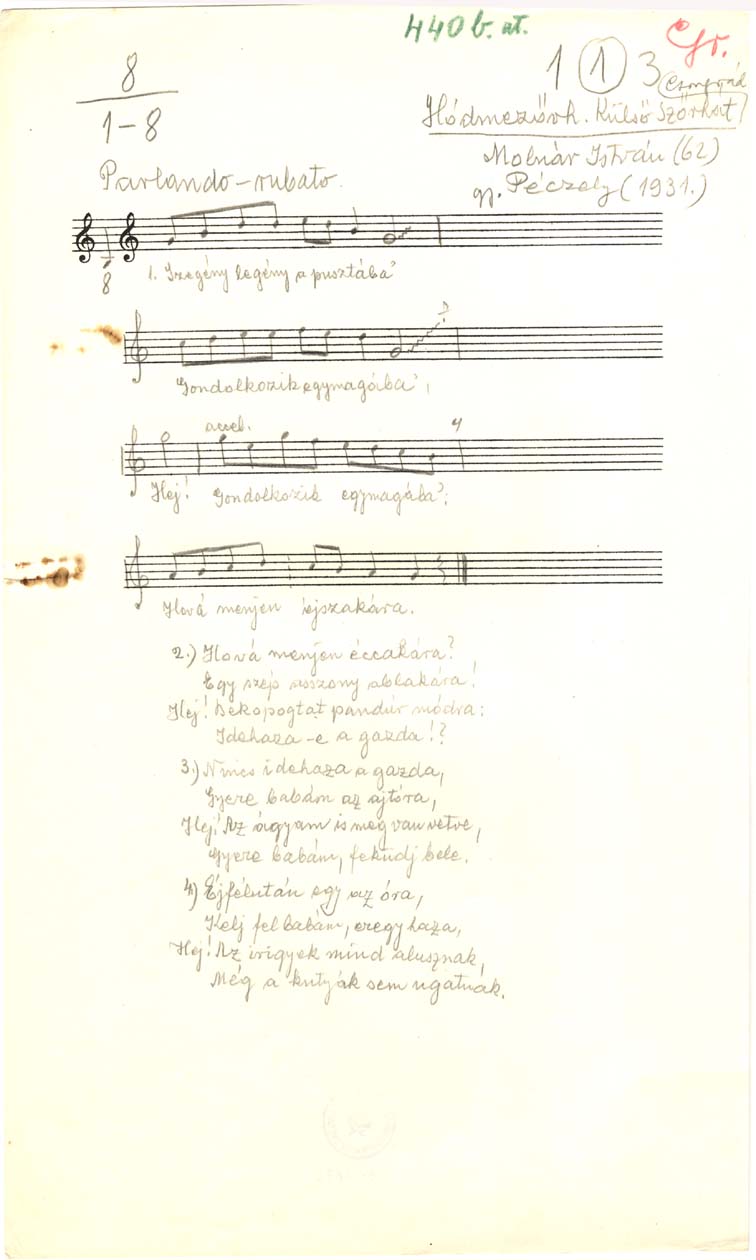 440 b. at.
Gr.
8
1-8
1 (1) 3
Csongrád
Hódmezővh. Külső Szőrhát
Molnár István (62)
gy. Péczely (1931.)
Parlando-rubato.
8
1. Szegény legény a pusztába'
Gondolkozik egymagába',
accel.
4
Hej! Gondolkozik egymagába';
Hová menjen éjszakára.
2.) Hová menjen éccakára?
Egy szép asszony ablakára!
Hej! bekopogtat pandúr módra:
Idehaza-e a gazda!?
3.) Nincs idehaza a gazda,
Gyere babám az ajtóra,
Hej! Az ágyam is meg van vetve,
Gyere babám, feküdj bele.
4.) Éjfélután egy az óra,
Kelj fel babám, eregy haza,
Hej! Az irigyek mind alusznak,
Még a kutyák sem ugatnak.